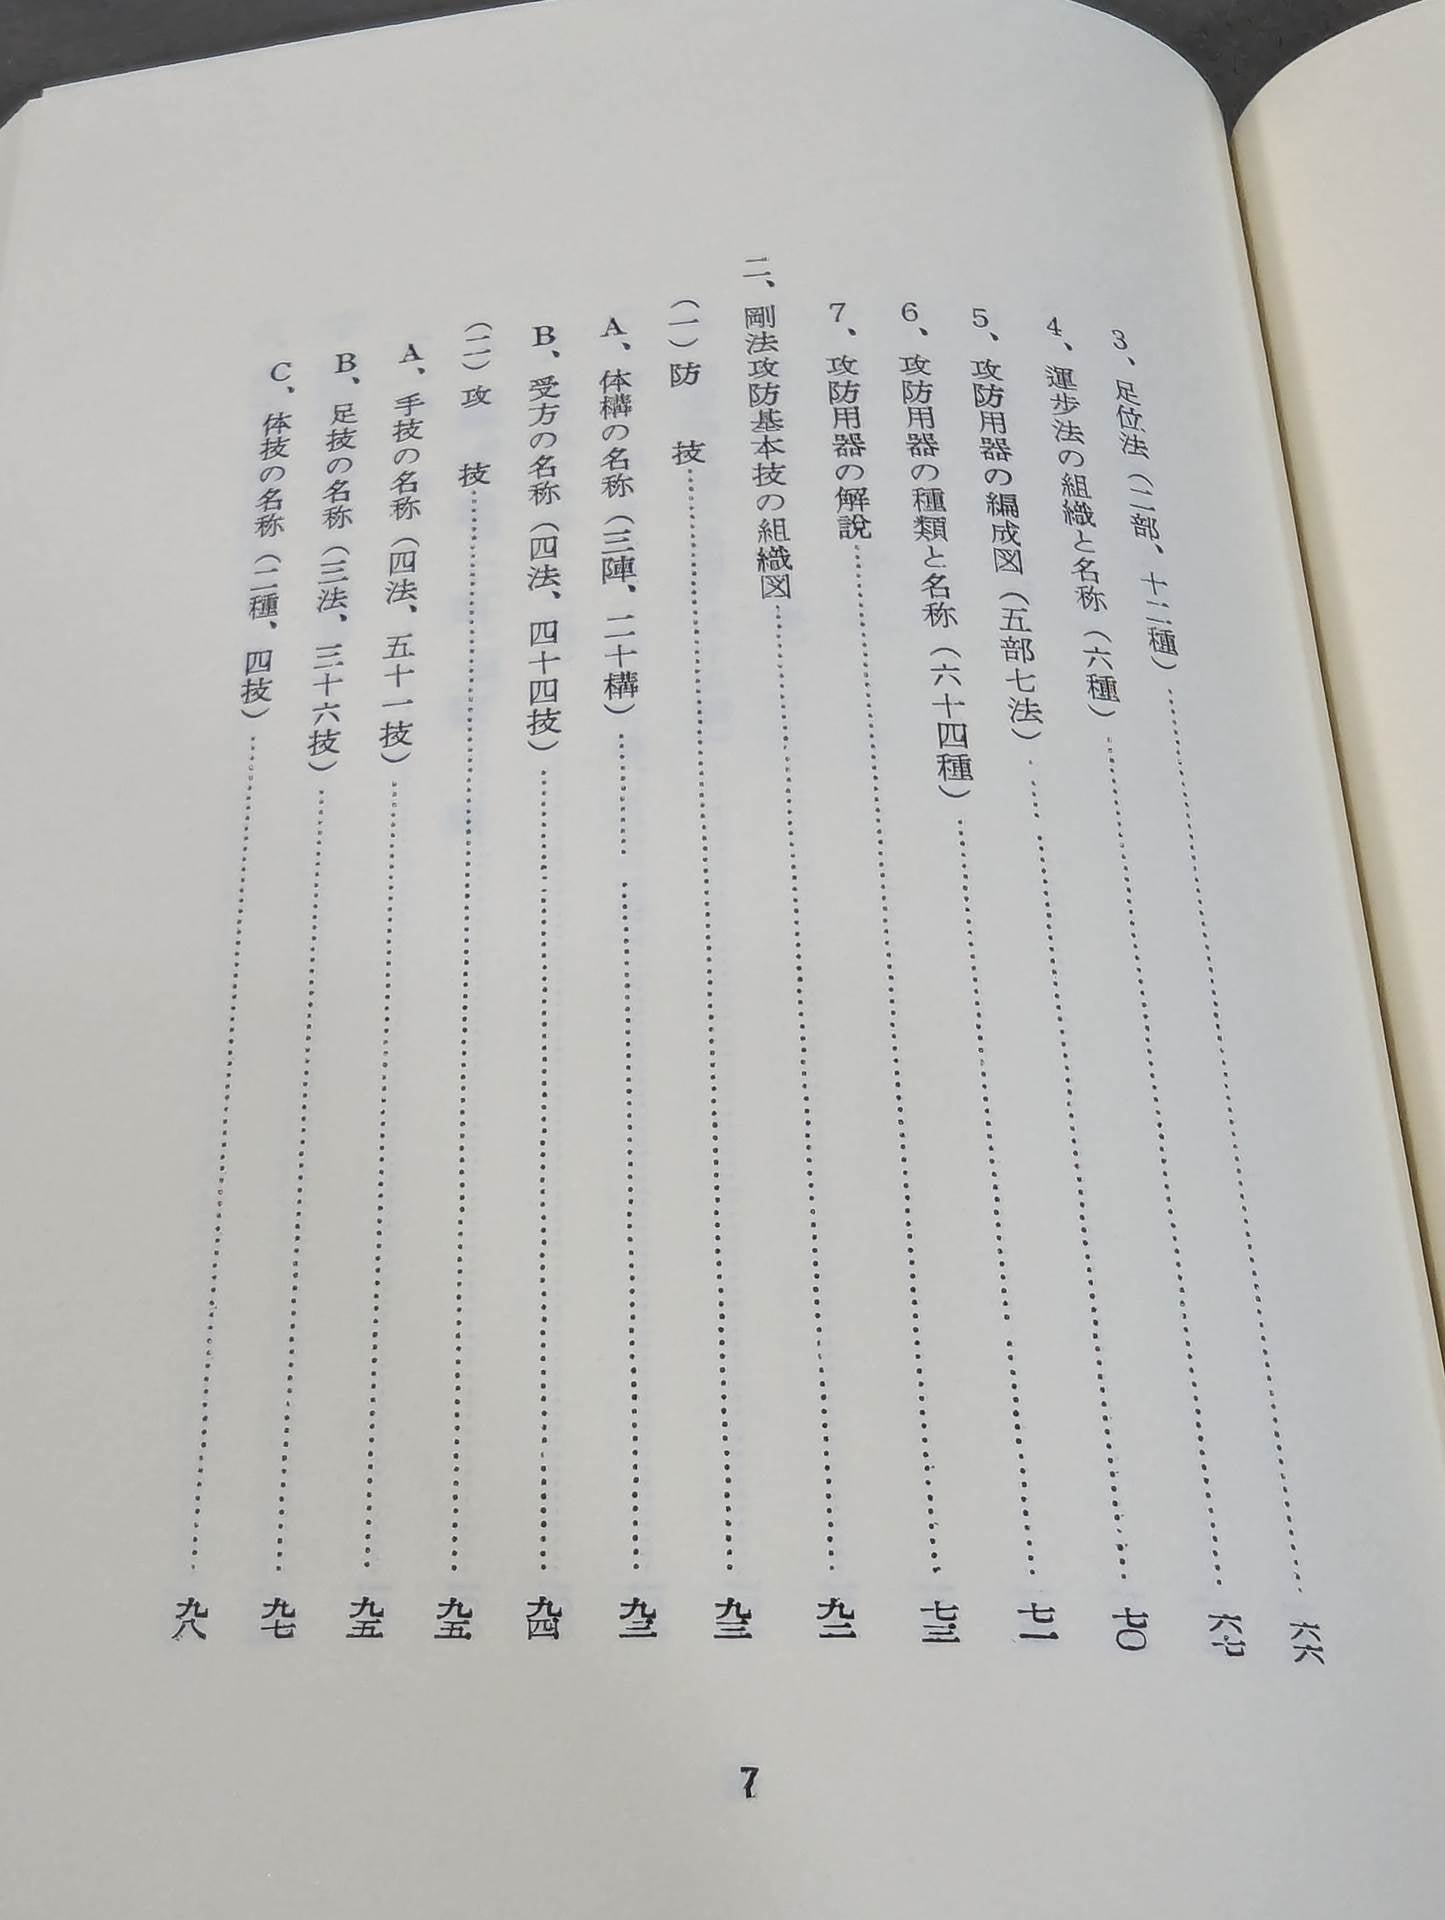 3、足位法（二部、十二種）……六六
4、運歩法の組織と名称（六種）……六七
5、攻防用器の編成図（五部七法）……七〇
6、攻防用器の種類と名称（六十四種）……七一
7、攻防用器の解説……七三
二、剛法攻防基本技の組織図……九二
（一）防　技……九三
A、体構の名称（三陣、二十構）……九三
B、受方の名称（四法、四十四技）……九四
（二）攻　技……九五
A、手技の名称（四法、五十一技）……九五
B、足技の名称（三法、三十六技）……九七
C、体技の名称（二種、四技）……九八
7